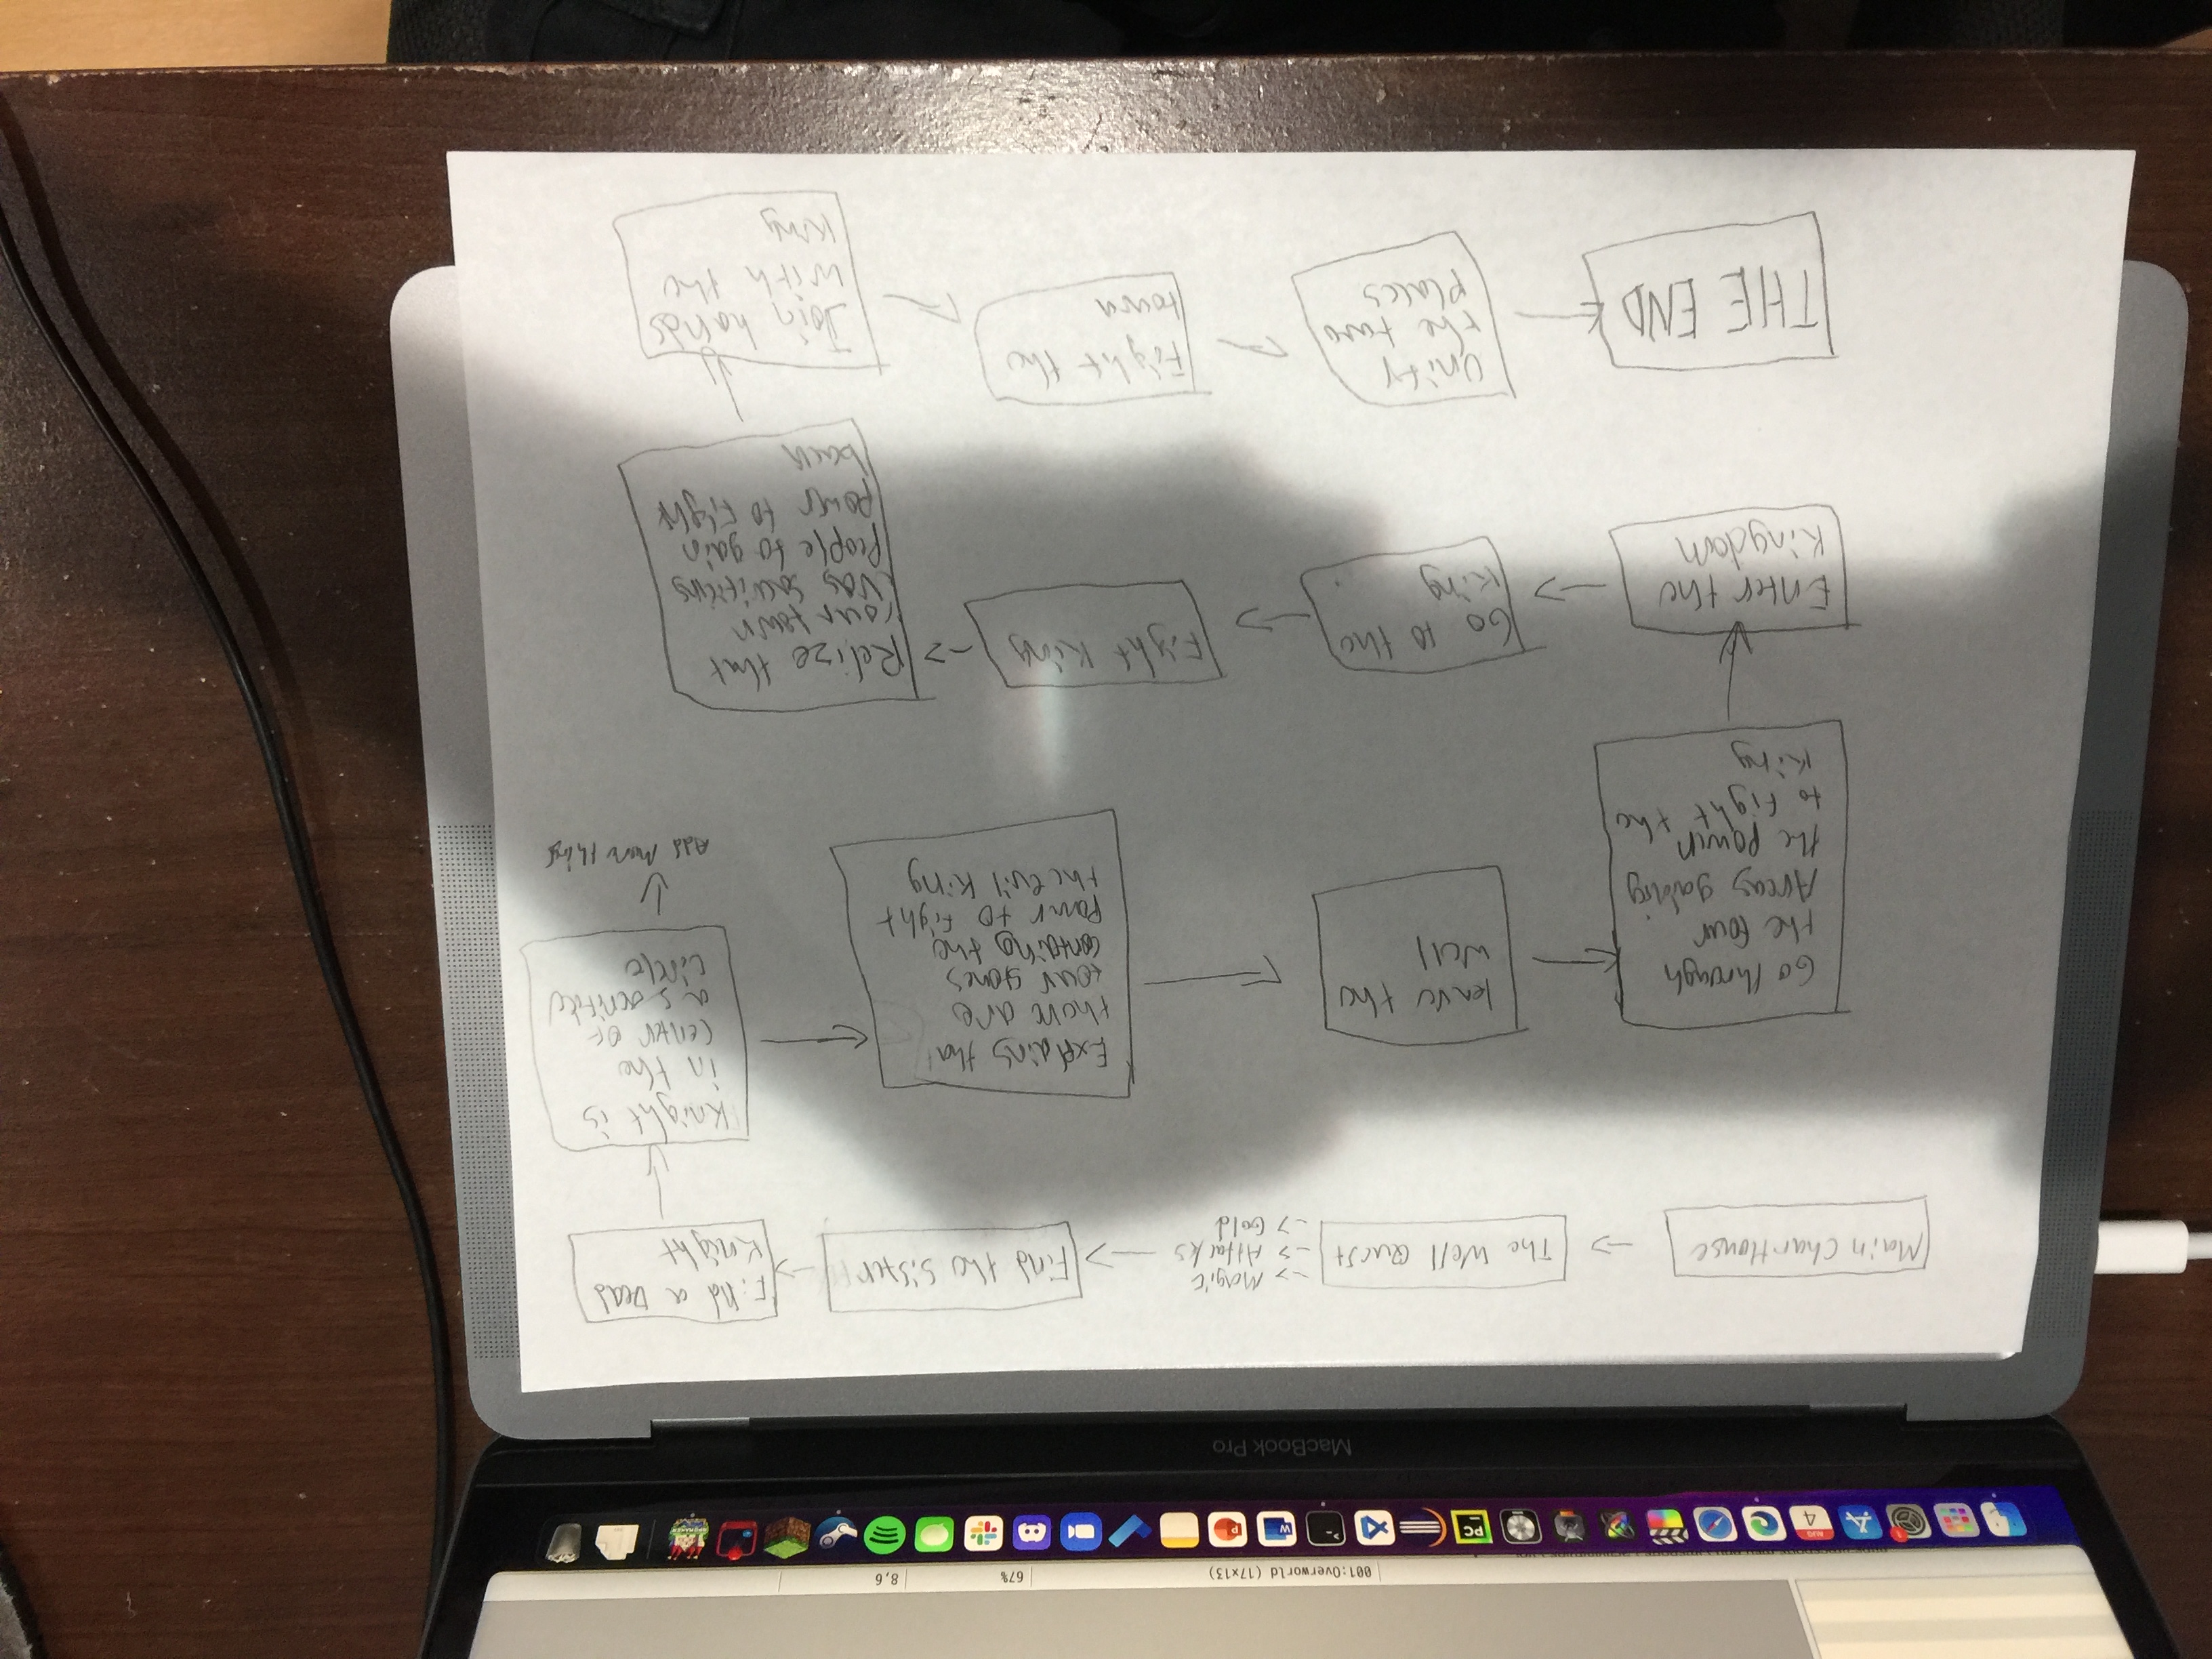 001:Overworld (17x13)
67%
8,6
AUG
4
PC
MacBook Pro
Main Char House
The Well Quest
-> Magic
-> Attacks
-> Gold
Find the Sister
Find a Dead
Knight
Knight is
in the
center of
a sacrifice
circle
Add more things
Explains that
there are
four stones
containing the
power to fight
the evil king
leave the
well
Go through
the four
Areas gaining
the power
to fight the
King
Enter the
Kingdom
Go to the
King
Fight King
Relize that
your town
was sacrificing
people to gain
power to fight
back
Join hands
with the
King
Fight the
town
Unify
the two
places
THE END